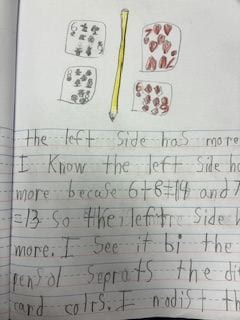 the left side has more
I Know the left side ha
more becuse 6+8=14 and 7
=13 So the left side h
more. I See it bi the
pensol Seprats the di
card colrs. I nodist th